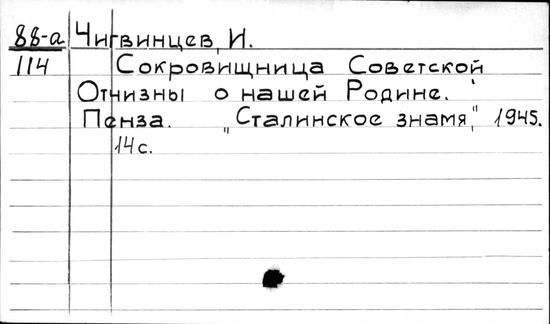 88-а Чигвинцев, И.
114 Сокровищница Советской
Отчизны о нашей Родине.
Пенза. "Сталинское знамя," 1945.
14 с.